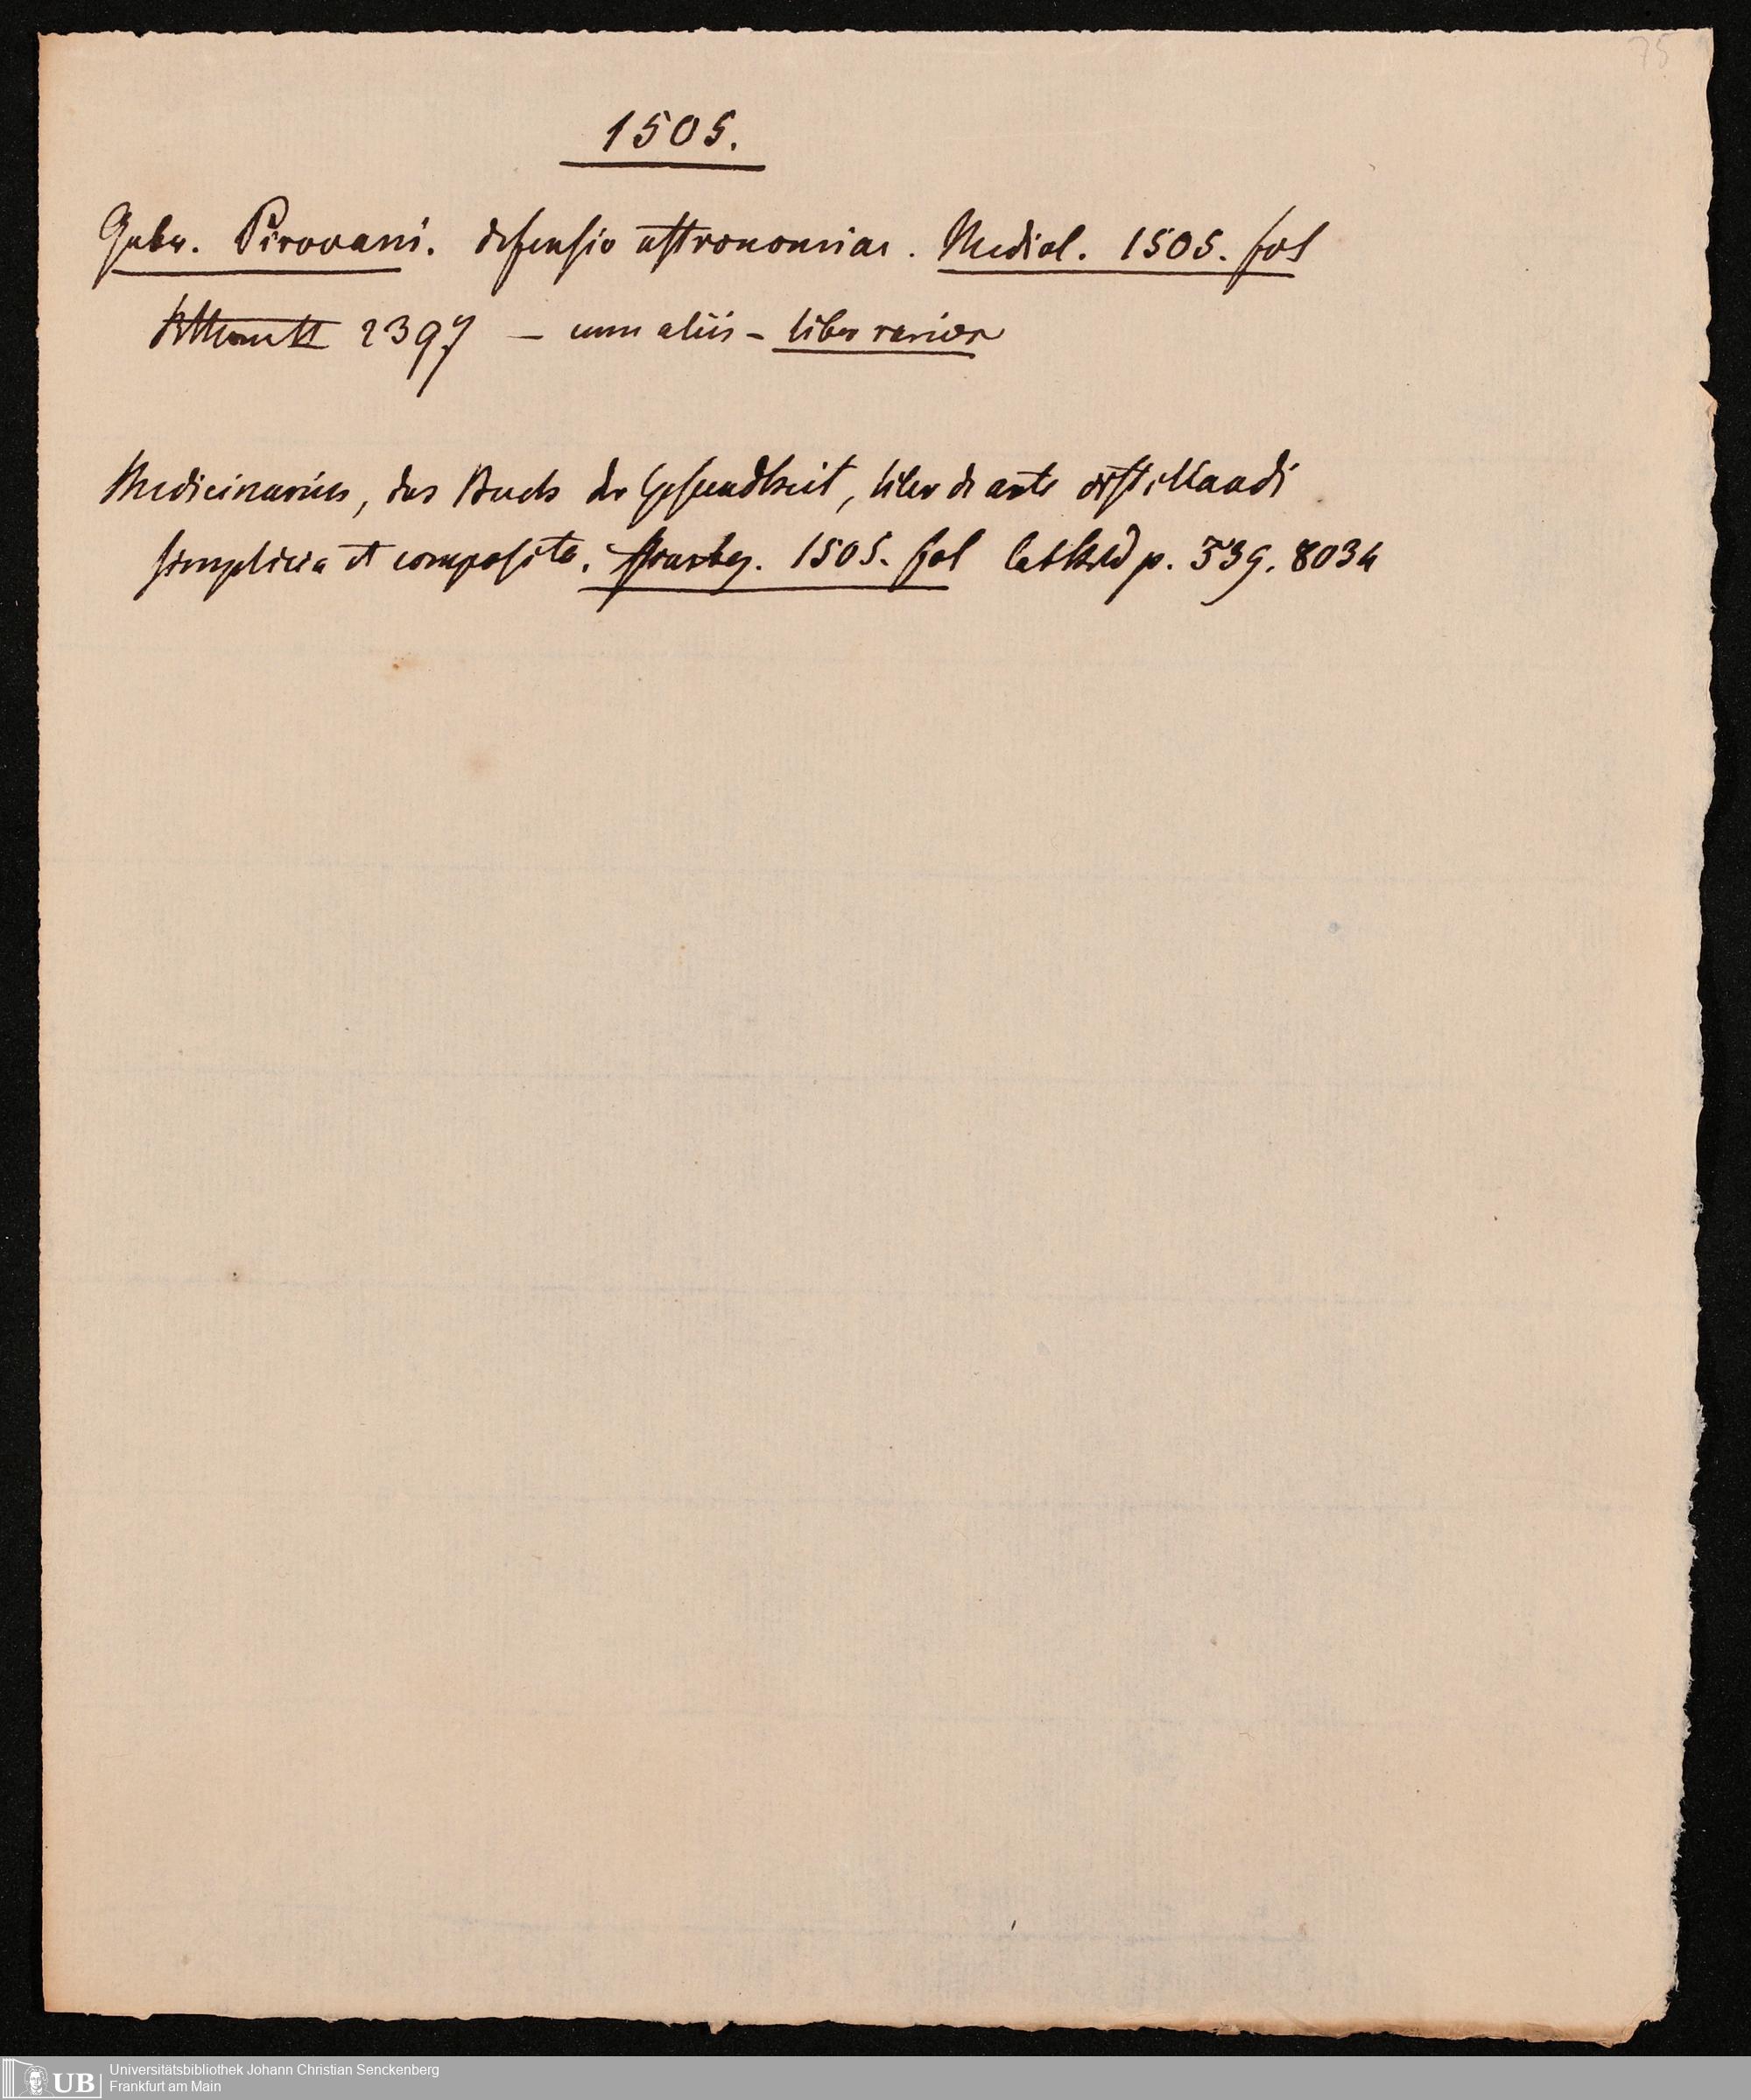 75
1505.
Gabr. Pirovani. defensio astronomiae. Mediol. 1505. fol
2397 – cum aliis – liber rarior
Medicinarius, das Buch der Gesundheit, liber de arte distillandi
simplicia et composita. Strasbg. 1505. fol p. 339. 8034
UB Universitätsbibliothek Johann Christian Senckenberg
Frankfurt am Main